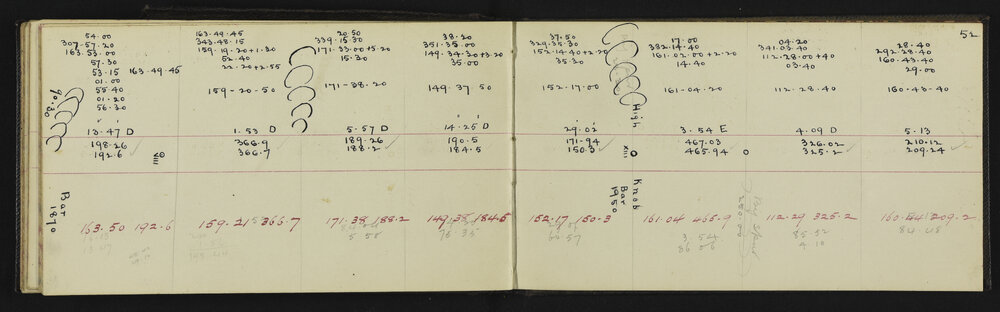 52
54.00 163.49.45 20.50 38.20 37.50 17.00 04.20 28.40
307.57.20 343.48.15 339.15.30 351.35.00 329.35.30 382.14.40 341.03.40 292.28.40
163.53.00 159.19.20+1.30 171.33.00+5.20 149.34.30+3.20 152.14.40+2.20 161.02.00+2.20 112.28.00+40 160.43.40
57.30 52.40 15.30 35.00 35.30 14.40 03.40 29.00
53.15 163.49.45 22.20+2.55
01.00
55.40 159-20-50 171-38.20 149.37.50 152.17.00 161-04.20 112.28.40 160-43-40
01.20
56.30
90.30
High
13.47 D 1.53 D 5.57 D 14.25 D 29.02 3.54 E 4.09 D 5.13
198.26 366.9 189.26 190.5 171.94 467.03 326.02 210.12
192.6 VIII 366.7 188.2 184.5 150.3 XIII 465.94 325.2 209.24
Bar 1870
Knob Bar 1950
163.50 192.6 159.21 366.7 171.38 188.2 149.38 184.5 152.17 150.3 161.04 465.9 112.29 325.2 160.44 209.2
5 58 75 35 66 57 3.54 85 32 84 48
86 06 4 10